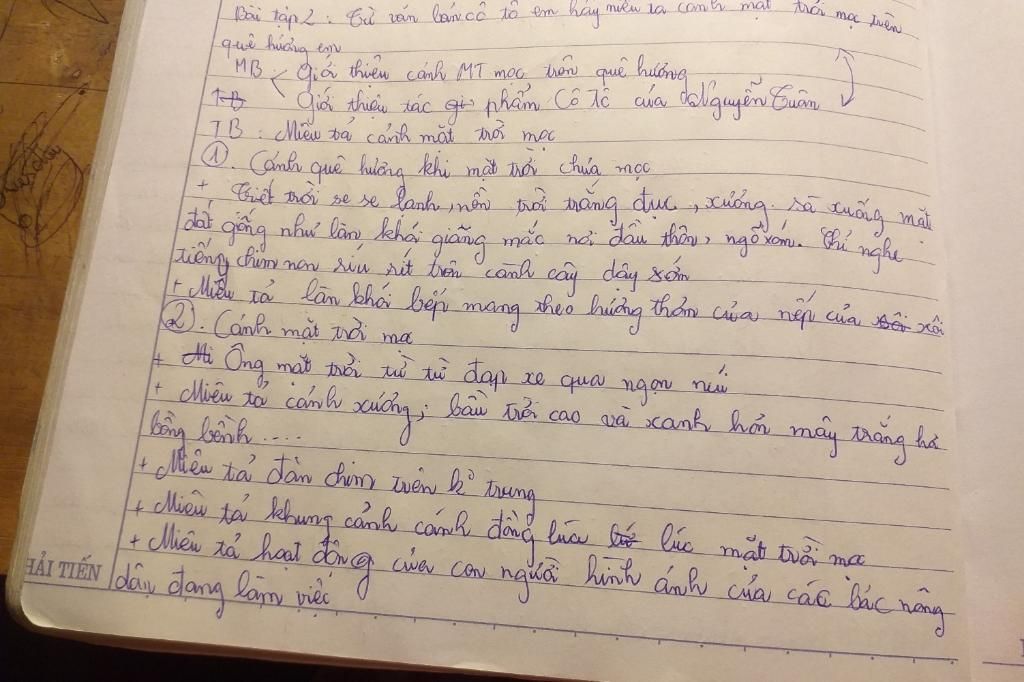 Bài tập 2: Từ văn bản cô tô em hãy miêu tả cảnh mặt trời mọc trên
quê hương em
MB: Giới thiệu cảnh MT mọc trên quê hương
TB Giới thiệu tác phẩm Cô Tô của Nguyễn Tuân
TB: Miêu tả cảnh mặt trời mọc
① . Cảnh quê hương khi mặt trời chưa mọc
+ Tiết trời se se lạnh, nền trời trắng đục, xương sà xuống mặt
đất giống như làn khói giăng mắc nơi đầu thôn, ngõ xóm. Chỉ nghe
tiếng chim non ríu rít trên cành cây dậy sớm
+ Miêu tả làn khói bếp mang theo hương thơm của nếp của xôi xôi
② . Cảnh mặt trời mọc
+ Mi Ông mặt trời từ từ đạp xe qua ngọn núi
+ Miêu tả cảnh xương; bầu trời cao và xanh hơn mây trắng hơ
bồng bềnh ....
+ Miêu tả đàn chim trên k° trung
+ Miêu tả khung cảnh cánh đồng lúa lúc mặt trời mọc
+ Miêu tả hoạt động của con người hình ảnh của các bác nông
dân đang làm việc
HẢI TIẾN